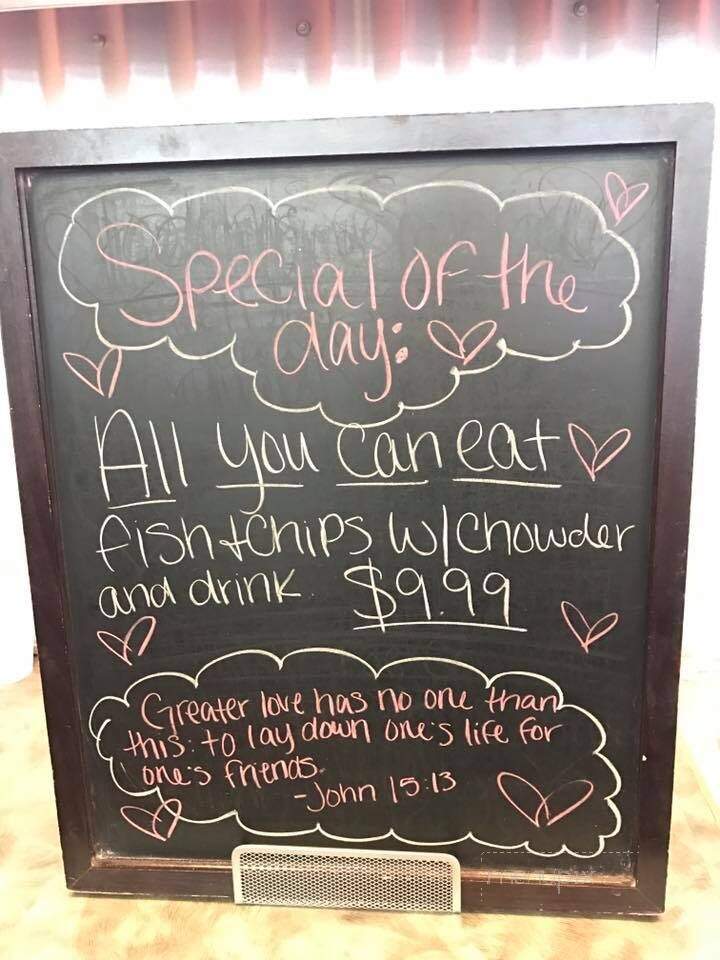 Special of the
day:
All you can eat
fish + chips w/chowder
and drink. $9.99
Greater love has no one than
this: to lay down one's life for
one's friends.
-John 15:13